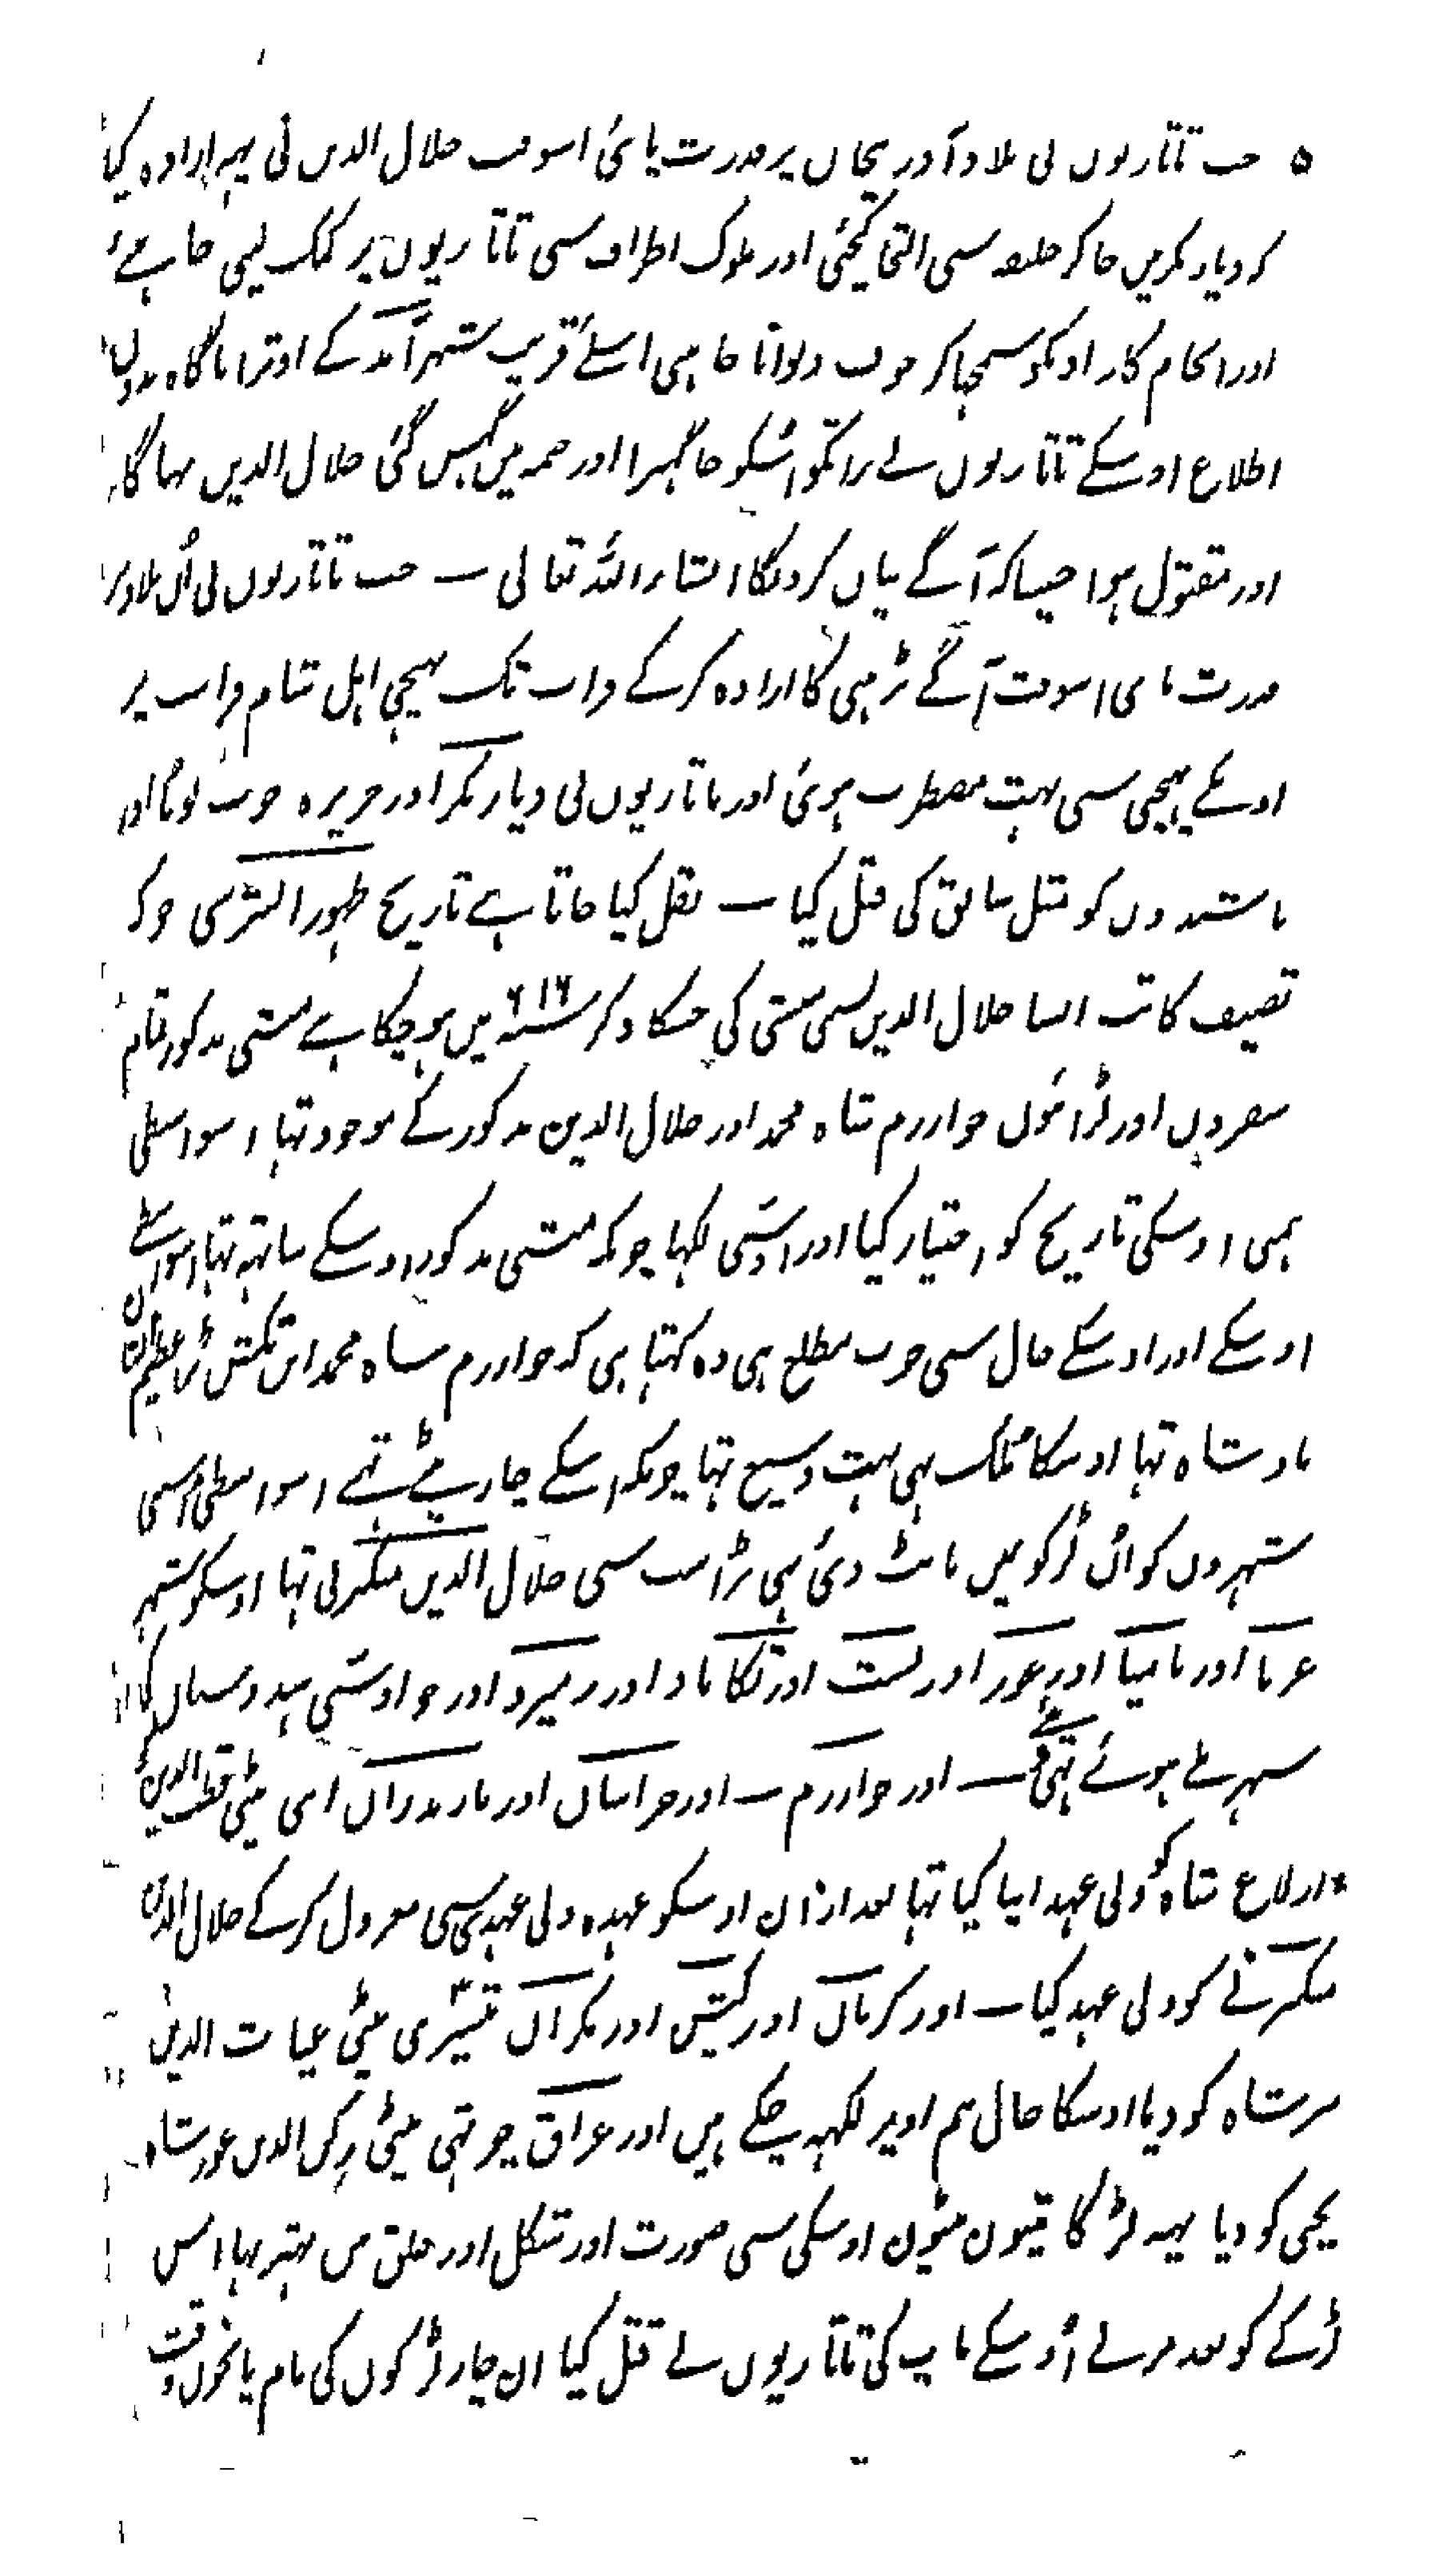 جب تاتاریوں نی بلاد آذربیجان پر قدرت پائی اسوقت جلال الدین نی یہہ ارادہ کیا
کہ دیار بکر میں جا کر خلیفہ سی التجا کیجئی اور ملوک اطراف سی تاتاریوں پر کمک لیی چاہئے
اور انجام کار اونکو سمجہا کر خوف دلوانا چاہی اسلئے قریب شہر آمد کے اوترا ناگاہ بدون
اطلاع اوسکے تاتاریوں نے راتکو اسکو جا گہیرا اور خیمہ میں گہس گئی جلال الدین بہاگا
اور مقتول ہوا جیسا کہ آگے بیان کرونگا انشاء اللہ تعالی ۔ جب تاتاریوں نی ان بلاد پر
قدرت پائی اسوقت آگے بڑہی کا ارادہ کرکے فرات تک پہنچی اہل شام فرات پر
اونکے پہنچی سی بہت مضطرب ہوئی اور تاتاریوں نی دیار بکر اور جزیرہ خوب لوٹا اور
باشندوں کو مثل سابق کی قتل کیا ۔ نقل کیا جاتا ہے تاریخ ظہور التتر سی جو کہ
تصنیف کاتب انشا جلال الدین نسی منشی کی جسکا ذکر سنہ ۶۱۶ میں ہو چکا ہے منشی مذکور تمام
سفروں اور لڑائیوں خوارزم شاہ محمد اور جلال الدین مذکور کے موجود تہا اسواسطی
ہمی اوسکی تاریخ کو اختیار کیا اور اوسسی لکہا چونکہ منشی مذکور اوسکے ساتہہ تہا اسواسطے
اوسکے اور اوسکے حال سی خوب مطلع ہی وہ کہتا ہی کہ خوارزم شاہ محمد ابن تکش بڑا عظیم الشان
بادشاہ تہا اوسکا ملک ہی بہت وسیع تہا چونکہ اسکے چار بیٹے تہے اسواسطی اسی
شہروں کو ان لڑکو میں بانٹ دئی ہی بڑا سب سی جلال الدین منکبرنی تہا اوسکو شہر
غزنا اور بامیا اور غور اور بست اور تکاباد اور زمیرد اور جو اوسسی ہندوستان کی
شہر ملے ہوئے تہی دئے ۔ اور خوارزم ۔ اور خراسان اور مازندران اپنی بیٹی قطب الدین
ازلاغ شاہ کو ولی عہد اپنا کیا تہا بعد ازان اوسکو عہدہ ولی عہدی سی معزول کرکے جلال الدین
منکبرنے کو ولی عہد کیا ۔ اور کرمان اور کیش اور مکران تیسری بیٹی غیاث الدین
تیرشاہ کو دیا اوسکا حال ہم اوپر لکہہ چکے ہیں اور عراق چوتہی بیٹی رکن الدین غورشاہ
یحیی کو دیا یہہ لڑکا تینون بیٹون اوسکی سی صورت اور شکل اور خلق میں بہتر تہا اس
لڑکے کو بعد مرنے اوسکے باپ کی تاتاریوں نے قتل کیا ان چار لڑکوں کی نام پانچوں وقت